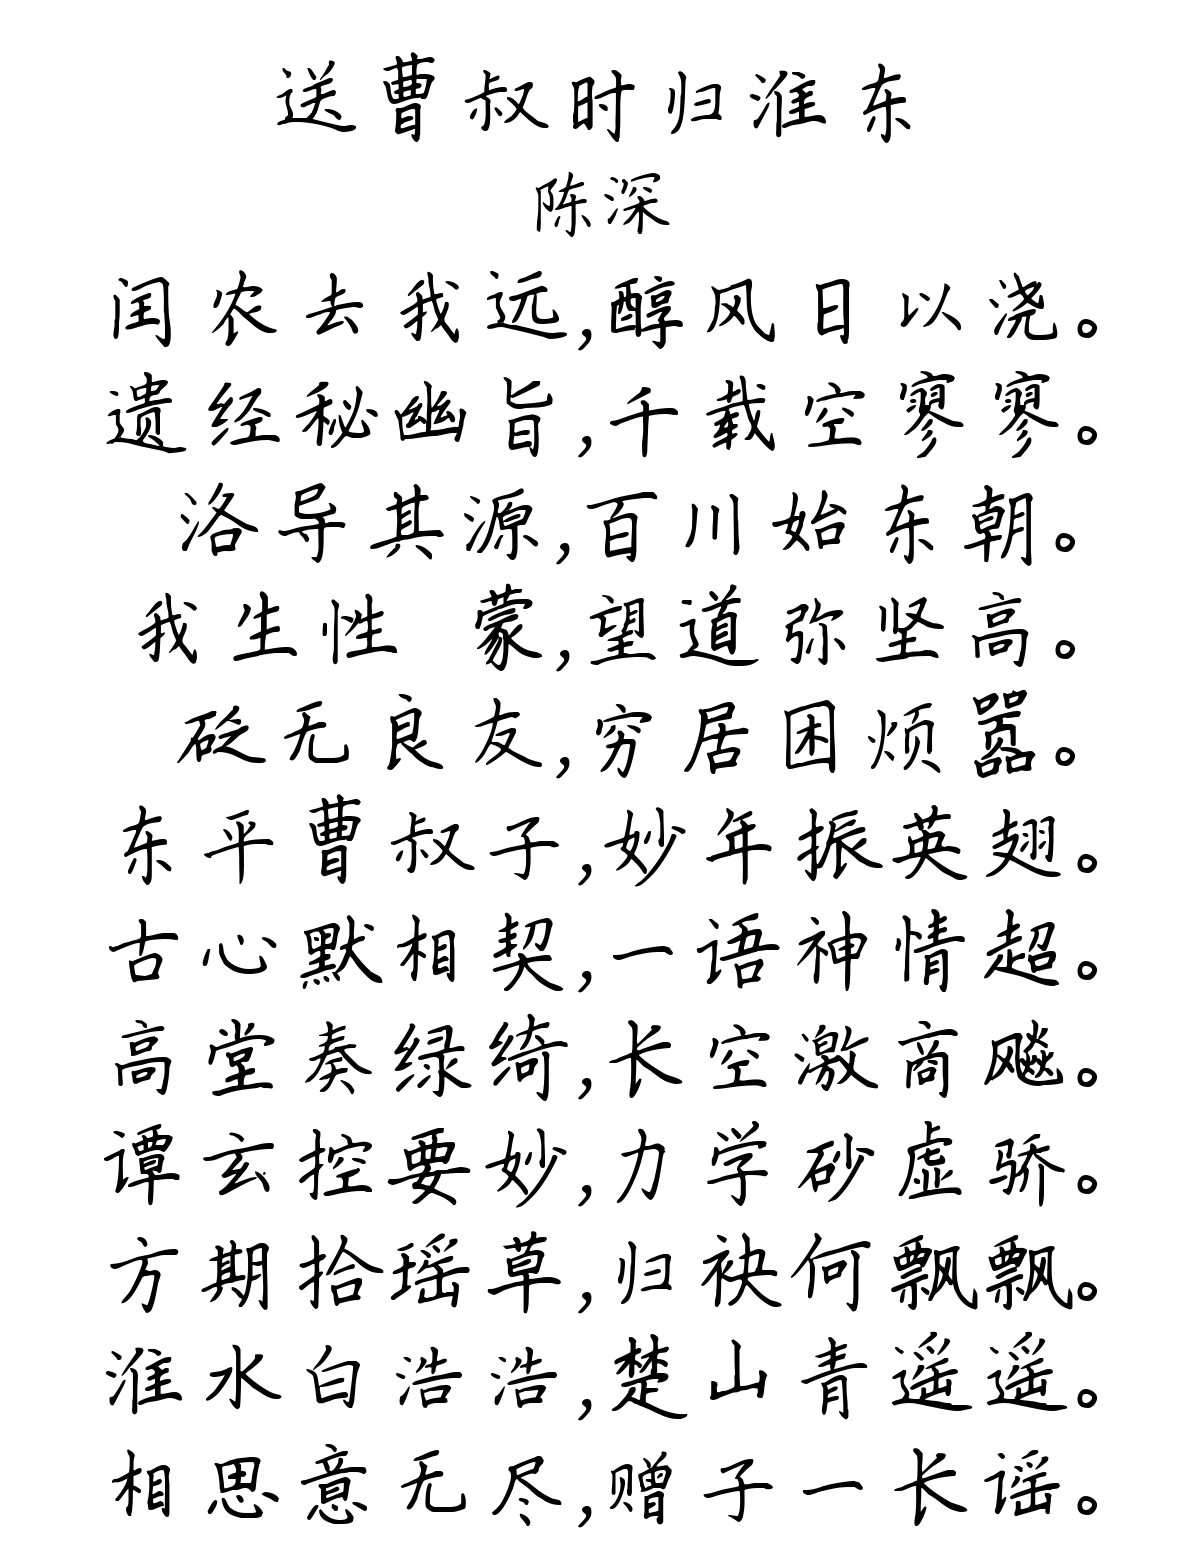 送曹叔时归淮东
陈深
闰农去我远,醇风日以浇。
遗经秘幽旨,千载空寥寥。
洛导其源,百川始东朝。
我生性 蒙,望道弥坚高。
砭无良友,穷居困烦嚣。
东平曹叔子,妙年振英翅。
古心默相契,一语神情超。
高堂奏绿绮,长空激商飚。
谭玄控要妙,力学砂虚骄。
方期拾瑶草,归袂何飘飘。
淮水白浩浩,楚山青遥遥。
相思意无尽,赠子一长谣。